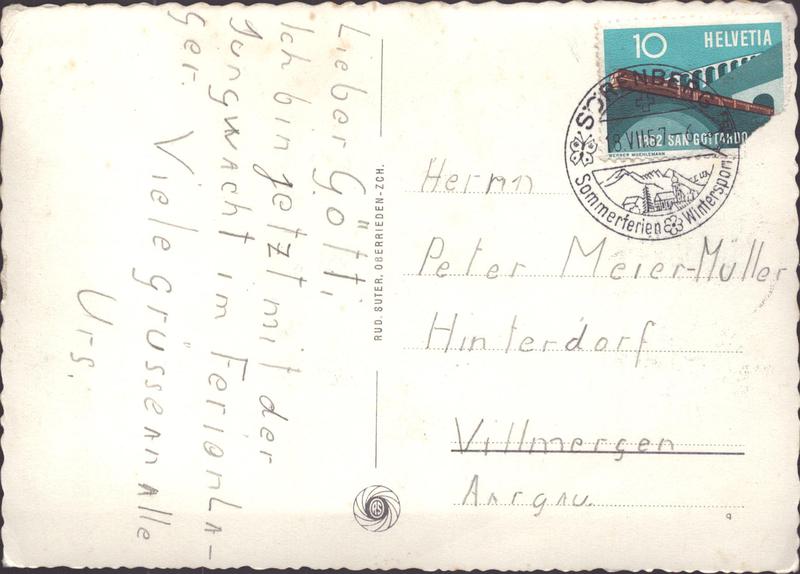 Lieber Götti,
Ich bin jetzt mit der
Jungwacht im Ferienla-
ger. Viele grüsse an Alle
Urs.
RUD. SUTER, OBERRIEDEN-ZCH.
RS
10 HELVETIA
1882 SAN GOTTARDO
WERNER MUEHLEMANN
SÖRENBERG
Sommerferien Wintersport
Herrn
Peter Meier-Müller
Hinterdorf
Villmergen
Aargau.